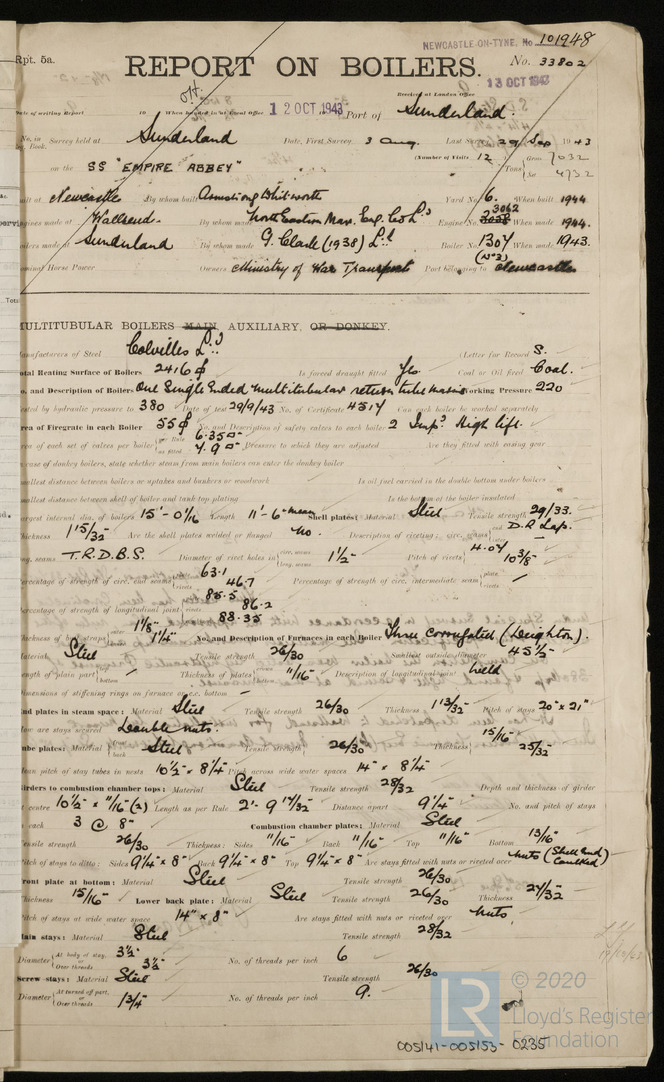 NEWCASTLE-ON-TYNE. No. 101948
Rpt. 5a.
REPORT ON BOILERS.
No. 33802
13 OCT 1943
Received at London Office
Date of writing Report 19 When handed in at Local Office 12 OCT. 1943 Port of Sunderland.
No. in Survey held at Sunderland Date, First Survey 3 Aug. Last Survey 29 Sep 1943
Reg. Book. (Number of Visits 12) Gross 7032
on the SS "EMPIRE ABBEY" Tons Net 4732
Built at Newcastle By whom built Armstrong Whitworth Yard No. 6. When built 1944
Engines made at Wallsend. By whom made North Eastern Mar. Eng. Co Ld. Engine No. 3062 When made 1944.
Boilers made at Sunderland By whom made G. Clark (1938) Ld. Boiler No. 1307 When made 1943.
(No 3)
Nominal Horse Power Owners Ministry of War Transport Port belonging to Newcastle
MULTITUBULAR BOILERS MAIN AUXILIARY, OR DONKEY.
Manufacturers of Steel Colvilles Ld. (Letter for Record S.
Total Heating Surface of Boilers 2416 Is forced draught fitted Yes Coal or Oil fired Coal.
No. and Description of Boilers One Single Ended multitubular return tube marine Working Pressure 220
Tested by hydraulic pressure to 380 Date of test 29/9/43 No. of Certificate 4514 Can each boiler be worked separately
Area of Firegrate in each Boiler 55 No. and Description of safety valves to each boiler 2 Imp. High lift.
Area of each set of valves per boiler per Rule 6.35 as fitted 7.9 Pressure to which they are adjusted Are they fitted with easing gear
In case of donkey boilers, state whether steam from main boilers can enter the donkey boiler
Smallest distance between boilers or uptakes and bunkers or woodwork Is oil fuel carried in the double bottom under boilers
Smallest distance between shell of boiler and tank top plating Is the bottom of the boiler insulated
Largest internal dia. of boilers 15'-0 1/16 Length 11'-6" mean Shell plates: Material Steel Tensile strength 29/33.
Thickness 1 15/32 Are the shell plates welded or flanged No. Description of riveting: circ. seams D.R. Lap.
long. seams T.R.D.B.S. Diameter of rivet holes in circ. seams long. seams 1 1/2 Pitch of rivets 4.04 10 3/8
Percentage of strength of circ. end seams 63.1 46.7 Percentage of strength of circ. intermediate seam
Percentage of strength of longitudinal joint 85.5 86.2 88.35
Thickness of butt straps 1 1/8 1 1/4 No. and Description of Furnaces in each Boiler Three corrugated (Deighton).
Material Steel Tensile strength 26/30 Smallest outside diameter 45 1/2
Length of plain part Thickness of plates 11/16 Description of longitudinal joint Weld
Dimensions of stiffening rings on furnace or c.c. bottom
End plates in steam space: Material Steel Tensile strength 26/30 Thickness 1 13/32 Pitch of stays 20" x 21"
How are stays secured Double nuts.
Tube plates: Material Steel Tensile strength 26/30 Thickness 15/16 25/32
Mean pitch of stay tubes in nests 10 1/2 x 8 1/4 Pitch across wide water spaces 14" x 8 1/4
Girders to combustion chamber tops: Material Steel Tensile strength 28/32 Depth and thickness of girder
at centre 10 1/2 x 11/16 (2) Length as per Rule 2'-9 17/32 Distance apart 9 1/4 No. and pitch of stays
in each 3 @ 8" Combustion chamber plates: Material Steel
Tensile strength 26/30 Thickness: Sides 11/16 Back 11/16 Top 11/16 Bottom 13/16
Pitch of stays to ditto: Sides 9 1/4 x 8" Back 9 1/4 x 8" Top 9 1/4 x 8" Are stays fitted with nuts or riveted over Nuts (Shell end) Caulked
Front plate at bottom: Material Steel Tensile strength 26/30
Thickness 15/16 Lower back plate: Material Steel Tensile strength 26/30 Thickness 27/32
Pitch of stays at wide water space 14" x 8" Are stays fitted with nuts or riveted over Nuts.
Main stays: Material Steel Tensile strength 28/32
Diameter At body of stay, 3 1/2 or Over threads 3 1/2 No. of threads per inch 6
Screw stays: Material Steel Tensile strength 26/30
Diameter At turned off part, or Over threads 1 3/4 No. of threads per inch 9.
LR
© 2020
Lloyd's Register
Foundation
005141-005153-0235